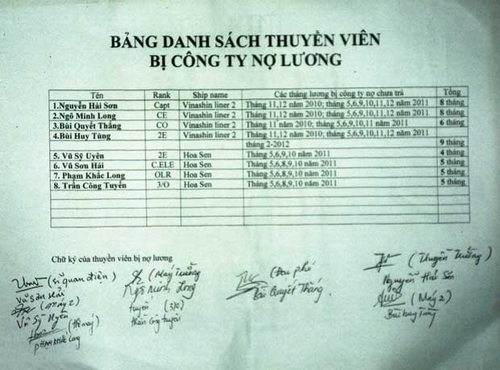 BẢNG DANH SÁCH THUYỀN VIÊN
BỊ CÔNG TY NỢ LƯƠNG
Tên Rank Ship name Các tháng lương bị công ty nợ chưa trả Tổng
1.Nguyễn Hải Sơn Capt Vinashin liner 2 Tháng 11,12 năm 2010; tháng 5,6,9,10,11,12 năm 2011 8 tháng
2.Ngô Minh Long CE Vinashin liner 2 Tháng 11,12 năm 2010; tháng 5,6,9,10,11,12 năm 2011 8 tháng
3.Bùi Quyết Thắng CO Vinashin liner 2 Tháng 11 năm 2010; tháng 5,6,9,10,11 năm 2011 6 tháng
4.Bùi Huy Tùng 2E Vinashin liner 2 Tháng 11,12 năm 2010; tháng 5,6,9,10,11,12 năm 2011
tháng 2-2012 9 tháng
5. Vũ Sỹ Uyên 2E Hoa Sen Tháng 5,6,9,10 năm 2011 4 tháng
6. Vũ Sơn Hải C.ELE Hoa Sen Tháng 5,6,8,9,10 năm 2011 5 tháng
7. Phạm Khắc Long OLR Hoa Sen Tháng 5,6,8,9,10 năm 2011 5 tháng
8. Trần Công Tuyến 3/O Hoa Sen Tháng 5,6,8,9,10 năm 2011 5 tháng
Chữ ký của thuyền viên bị nợ lương
(sĩ quan điện) (Máy trưởng) (Đại phó) (Thuyền trưởng)
Vũ Sơn Hải Ngô Minh Long Bùi Quyết Thắng Nguyễn Hải Sơn
(Máy 2) (Máy 2)
Vũ Sỹ Uyên Trần Công Tuyến Bùi Huy Tùng
Phạm Khắc Long